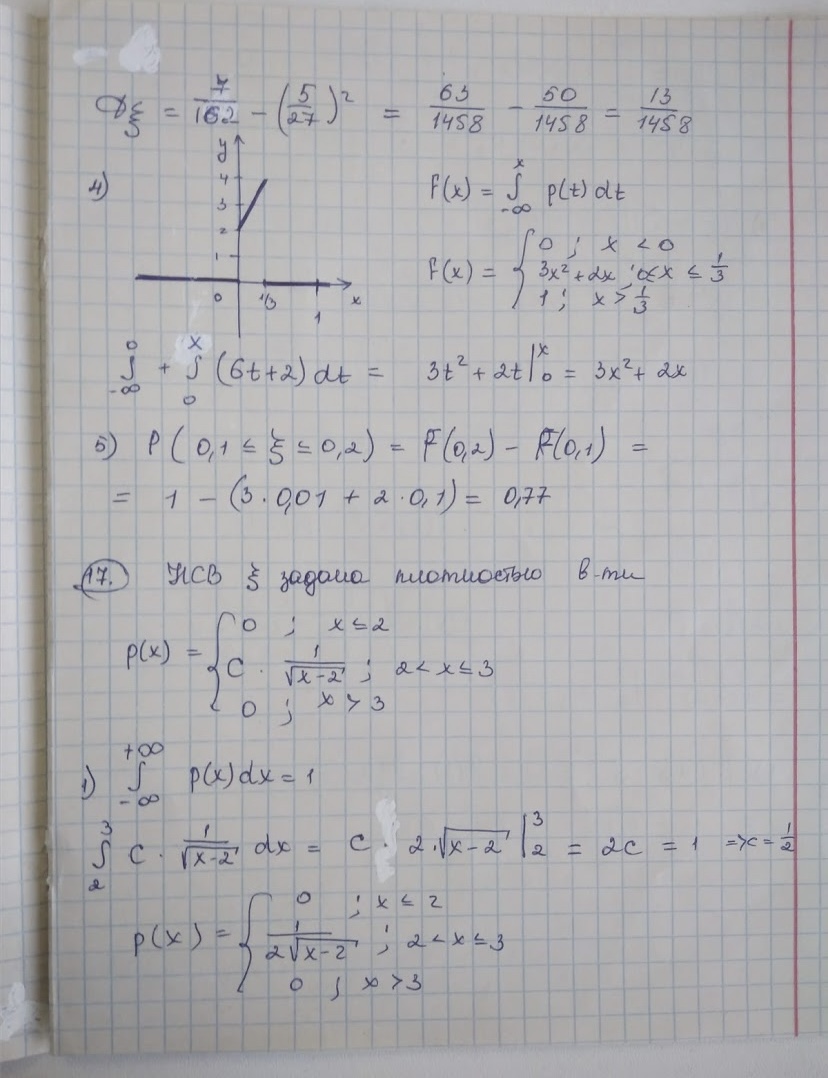 Dξ = 7/162 − (5/27)² = 63/1458 − 50/1458 = 13/1458
4)
y
4
3
2
1
0 1/3 1 x
F(x) = ∫_{-∞}^{x} p(t) dt
F(x) = { 0 ; x < 0
3x² + 2x ; 0 < x ≤ 1/3
1 ; x > 1/3
∫_{-∞}^{0} + ∫_{0}^{x} (6t+2) dt = 3t² + 2t |_{0}^{x} = 3x² + 2x
5) P( 0,1 ≤ ξ ≤ 0,2 ) = F(0,2) − F(0,1) =
= 1 − (3·0,01 + 2·0,1) = 0,77
17. НСВ ξ задана плотностью в-ти
p(x) = { 0 ; x ≤ 2
C · 1/√(x−2) ; 2 < x ≤ 3
0 ; x > 3
1) ∫_{-∞}^{+∞} p(x)dx = 1
∫_{2}^{3} C · 1/√(x−2) dx = C · 2·√(x−2) |_{2}^{3} = 2C = 1 => C = 1/2
p(x) = { 0 ; x ≤ 2
1/(2√(x−2)) ; 2 < x ≤ 3
0 ; x > 3